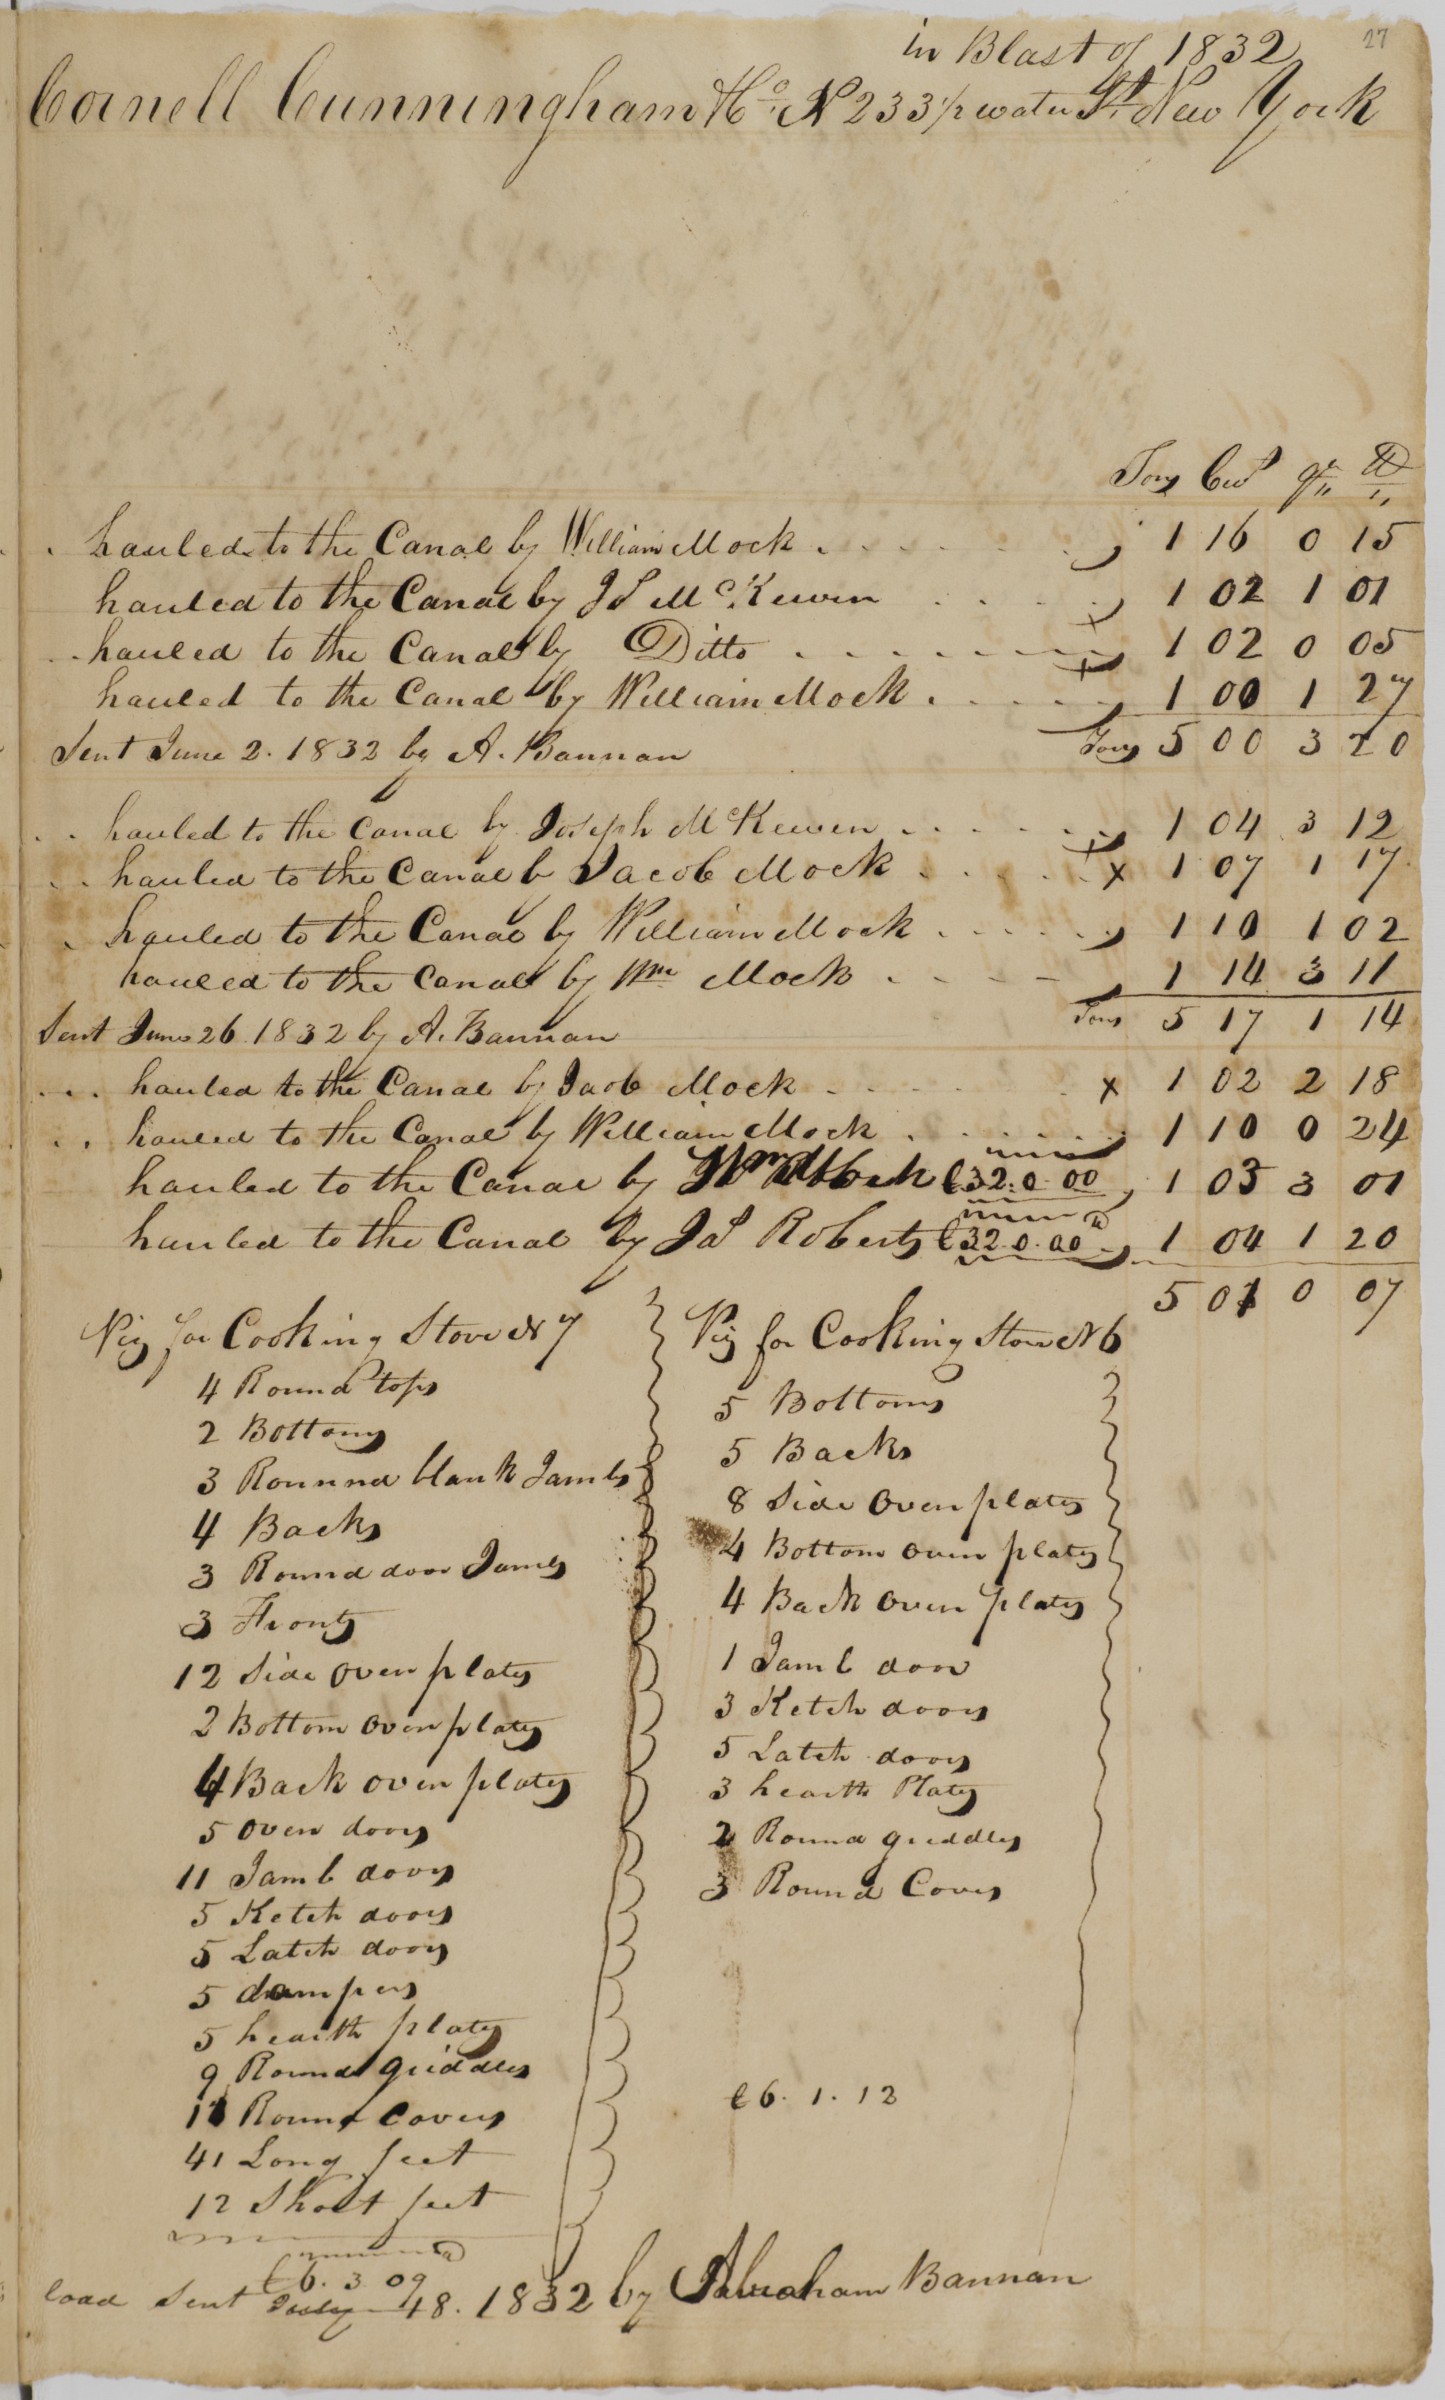 in Blast of 1832 27
Cornell Cunningham & Co. N 233 1/2 water St. New York
Tons Cwt qrs lb
hauled to the Canal by William Mock 1 16 0 15
hauled to the Canal by Js McKewen 1 02 1 01
hauled to the Canal by Ditto 1 02 0 05
hauled to the Canal by William Mock 1 00 1 27
Sent June 2. 1832 by A. Bannan Tons 5 00 3 20
hauled to the Canal by Joseph McKewen 1 04 3 12
hauled to the Canal b Jacob Mock x 1 07 1 17
hauled to the Canal by William Mock 1 10 1 02
hauled to the Canal by Wm Mock 1 14 3 11
Sent June 26 1832 by A. Bannan Tons 5 17 1 14
hauled to the Canal by Jacob Mock x 1 02 2 18
hauled to the Canal by William Mock 1 10 0 24
hauled to the Canal by Wm Mock C32.0.00 1 03 3 01
hauled to the Canal by Jas Roberts C32.0.00 1 04 1 20
5 01 0 07
Pig for Cooking Stove N 7
4 Round tops
2 Bottoms
3 Rounnd blank Jambs
4 Backs
3 Round door Jambs
3 Fronts
12 Side oven plates
2 Bottom oven plates
4 Back oven plates
5 oven doors
11 Jamb doors
5 Ketch doors
5 Latch doors
5 dampers
5 hearth plates
9 Round griddles
11 Round Covers
41 Long feet
12 Short feet
C6. 3 09
Pig for Cooking Stove N 6
5 Bottoms
5 Backs
8 Side oven plates
4 Bottom oven plates
4 Back oven plates
1 Jamb door
3 Ketch doors
5 Latch doors
3 hearth Plates
2 Round griddles
3 Round Covers
C6. 1. 12
load sent July 18. 1832 by Abraham Bannan